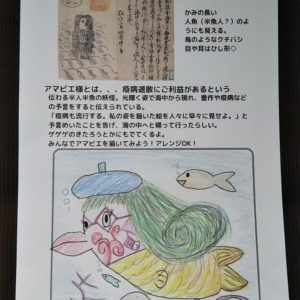 かみの長い
人魚（半魚人？）のよ
うにも見える。
鳥のようなクチバシ
目や耳はひし形◇
アマビエ様とは、、、疫病退散にご利益があるという
伝わる半人半魚の妖怪。光輝く姿で海中から現れ、豊作や疫病など
の予言をすると伝えられている。
「疫病も流行する。私の姿を描いた絵を人々に早々に見せよ。」と
予言めいたことを告げ、海の中へと還って行ったらしい。
ゲゲゲのきたろうとかにもでてくるよ。
みんなでアマビエを描いてみよう！アレンジOK！